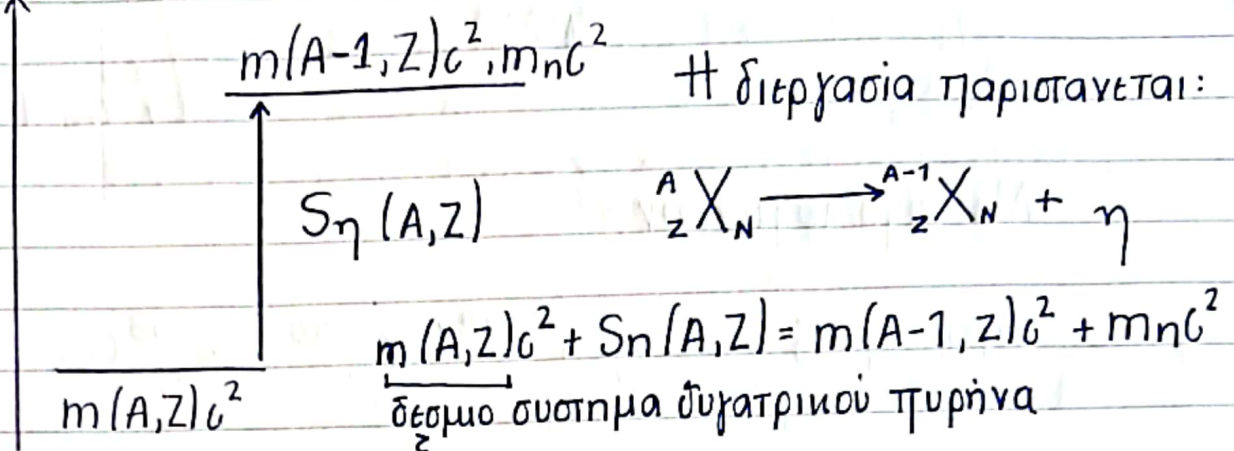 m(A-1,Z)c², mₙc²
Η διεργασία παριστανεται:
Sη (A,Z)
ᴬ_Z X_N ⟶ ᴬ⁻¹_Z X_N + η
m(A,Z)c² + Sn(A,Z) = m(A-1,Z)c² + mnc²
m(A,Z)c²
δεσμιο συστημα θυγατρικού πυρήνα